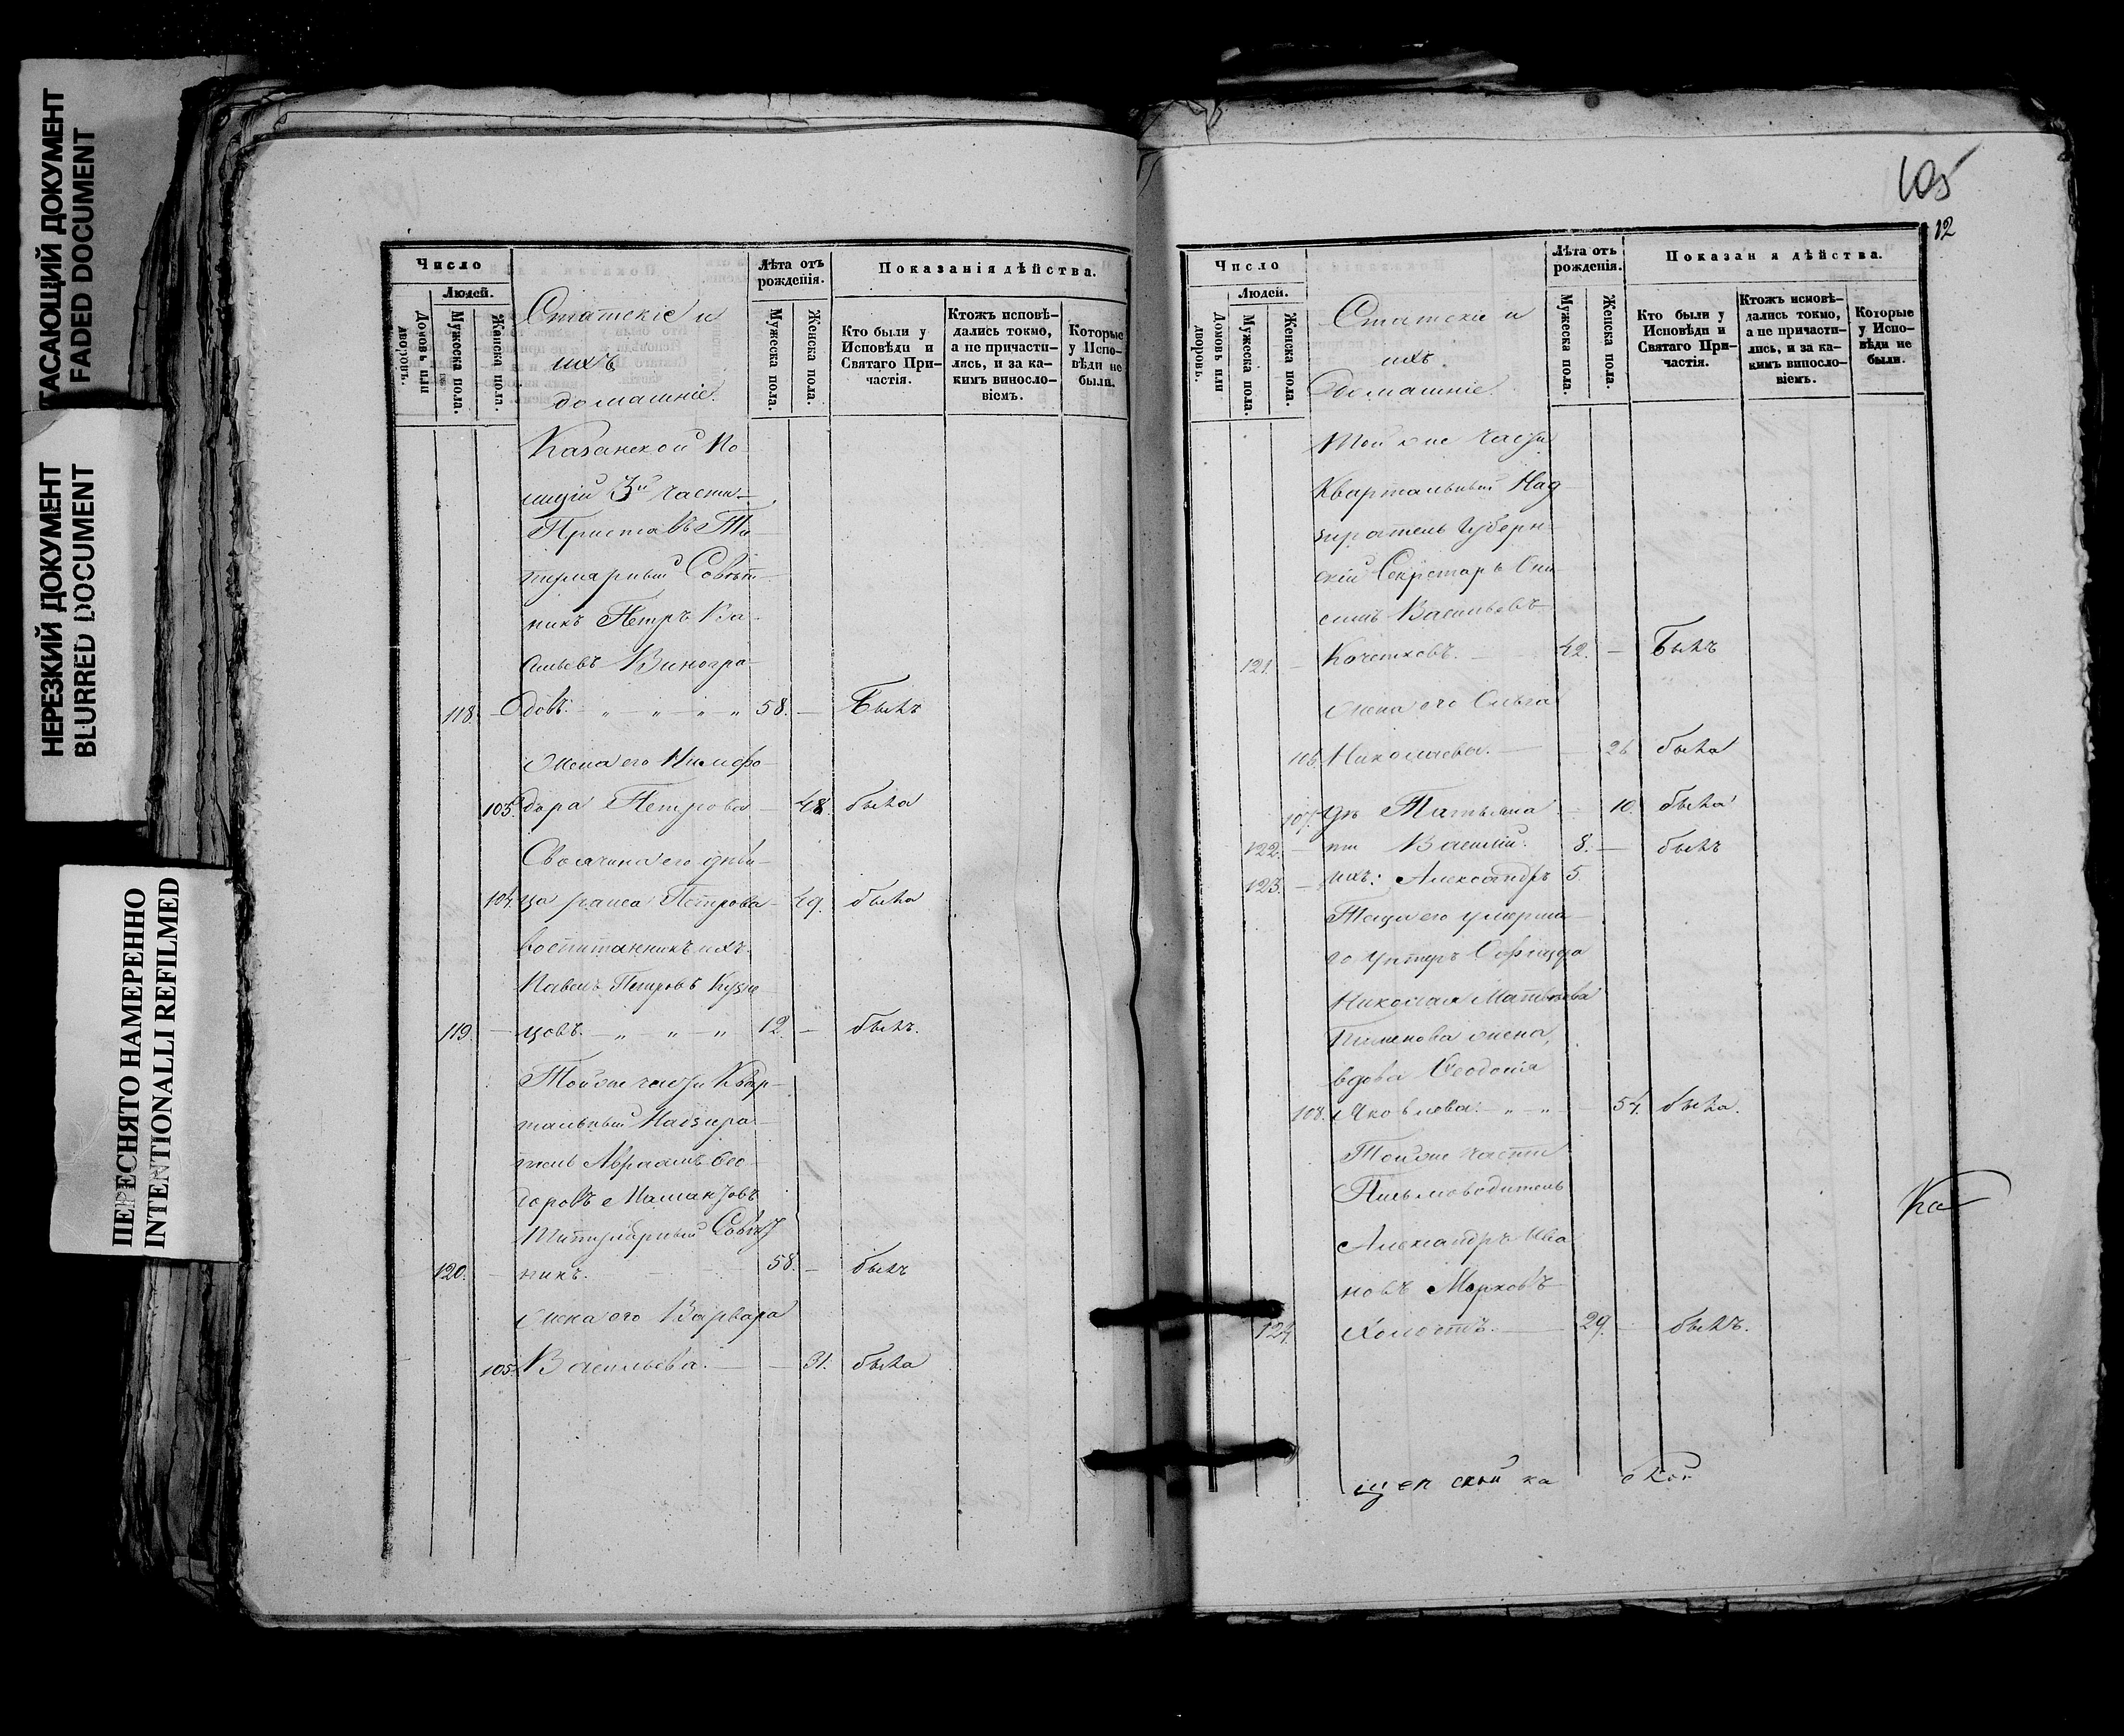 ТАСАЮЩИЙ ДОКУМЕНТ
FADED DOCUMENT
НЕРЕЗКИЙ ДОКУМЕНТ
BLURRED DOCUMENT
ПЕРЕСНЯТО НАМЕРЕННО
INTENTIONALLI REFILMED
Число
Людей.
Домовъ или дворовъ.
Мужеска пола.
Женска пола.
Статскіе и
ихъ
домашніе.
Лѣта отъ рожденія.
Мужеска пола.
Женска пола.
Показанія дѣйства.
Кто были у Исповѣди и Святаго Причастія.
Ктожъ исповѣ-
дались токмо,
а не причасти-
лись, и за ка-
кимъ виносло-
віемъ.
Которые
у Испо-
вѣди не
были.
Казанской По-
лиціи 3й части
Приставъ Ти-
тулярный Совѣт-
никъ Петръ Ва-
сильевъ Виногра-
118. — довъ. — „ — „ — „ „ 58. — Былъ
Жена его Нимфо-
103. дора Петрова — 48. была
Свояченa его дѣви-
104. ца раиса Петрова — 49. была
воспитанникъ ихъ
Павелъ Петровъ Кузне-
119. — цовъ. — „ — „ — „ 12. — былъ.
Той же части Квар-
тальный Надзира-
тель Авраамъ Ѳео-
доровъ
Титулярный Совѣт
120. — никъ. 58. — былъ
Жена его Варвара
105. Васильева. — — 31. была
105
12
Число
Людей.
Домовъ или дворовъ.
Мужеска пола.
Женска пола.
Статскіе и
ихъ
Домашніе.
Лѣта отъ
рожденія.
Мужеска пола.
Женска пола.
Показан я дѣйства.
Кто были у
Исповѣди и
Святаго При-
частія.
Ктожъ исповѣ-
дались токмо,
а не причасти-
лись, и за ка-
кимъ виносло-
віемъ.
Которые
у Испо-
вѣди не
были.
Той же части
Квартальный Над-
зиратель Губерн-
скій Секретарь Они-
симъ Васильевъ
121. — Кочетковъ. — 42. — Былъ
Жена его Ольга
106. Николаева. — — 26 была
107. Дѣ Татьяна — 10. была
122. — ти Василій. 8. — былъ
123. — ихъ: Александръ 5.
Теща его умерша-
го Унтеръ Офицера
Николая Матвѣева
жена,
вдова Ѳеодосія
108. Яковлева. — „ — „ — 54. была.
Той же части
Письмоводитель
Александръ Ива
новъ Марковъ
124. Холостъ. — 29. — былъ.
Ка
щен ской ка